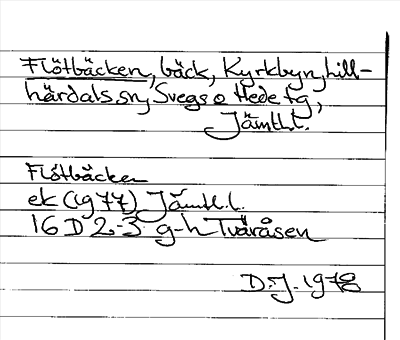 Flötbäcken, bäck, Kyrkbyn, Lill-
härdals sn, Svegs o Hede tg,
Jämtl.l.
Flötbäcken
ek (1977) Jämtl.l.
16 D 2-3 g-h Tvåråsen
D.J. 1978